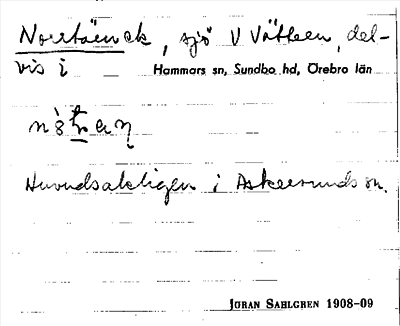 Norrtärnen, sjö V Vättern, del-
vis i Hammars sn, Sundbo hd, Örebro län
Huvudsakligen i Askersunds sn.
JÖRAN SAHLGREN 1908-09